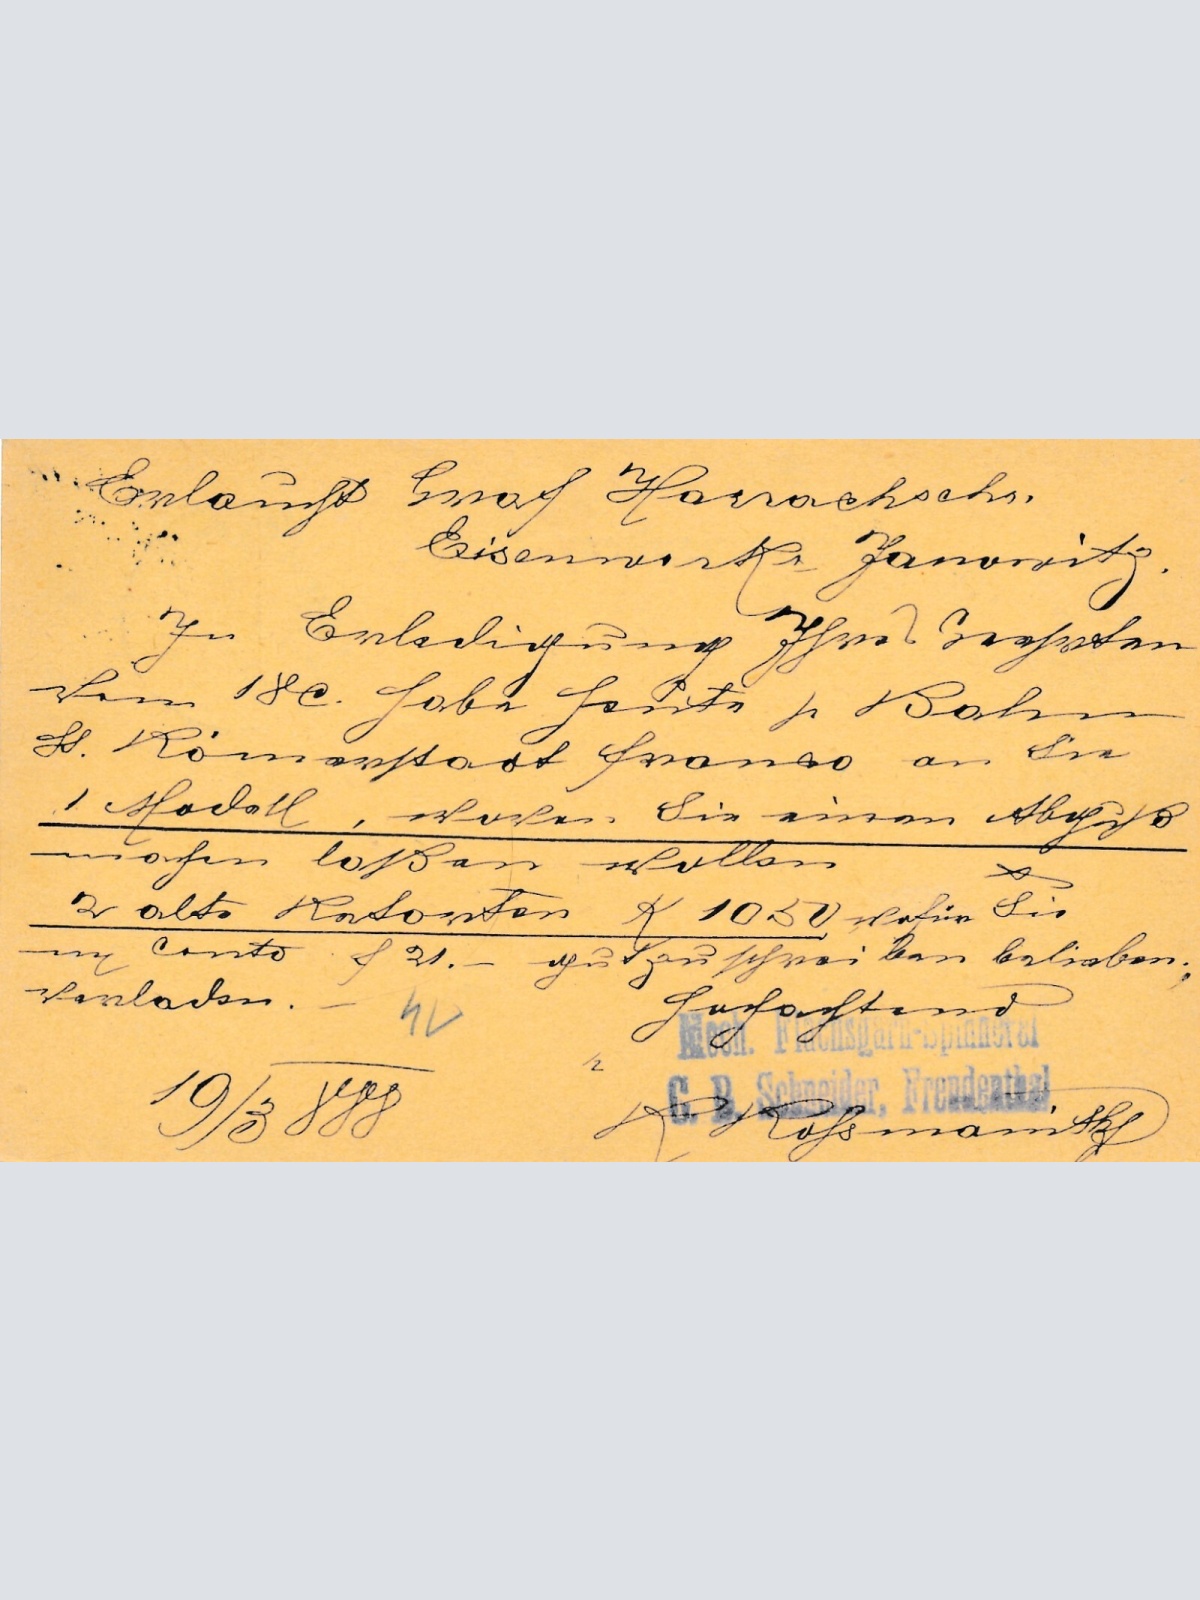 Erlaucht Graf Harrachsche
Eisenwerke Janowitz.
In Erledigung Ihres Geehrten
vom 18 c. habe heute p Bahn
St. Römerstadt franco an Sie
1 Modell, wovon Sie einen Abguß
machen laßen wollen
2 alte Retorten K 1050 wofür Sie
conto f 21.- gutzuschreiben belieben,
verladen. -
Hochachtend
Mech. Flachsgarn-Spinnerei
C. B. Schneider, Freudenthal
19/3 888